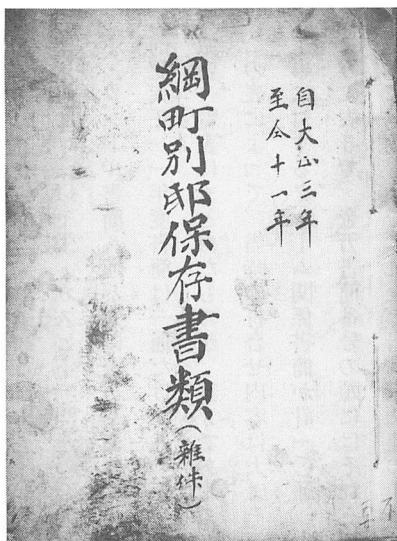 自大正三年
至仝十一年
綱町別邸保存書類(雑件)